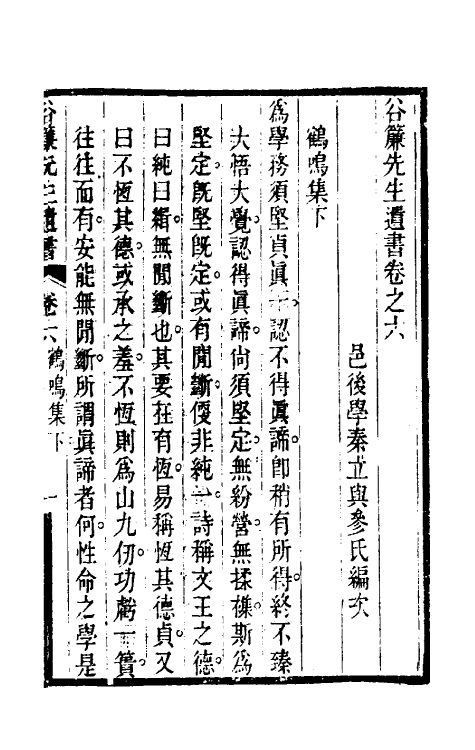 谷簾先生遺書卷之六
邑後學秦立與參氏編次
鶴鳴集下
為學務須堅貞眞一認不得眞諦卽稍有所得終不臻
大悟大覺認得眞諦尙須堅定無紛營無揉襍斯爲
堅定旣堅旣定或有閒斷便非純一詩稱文王之德
曰純曰緝無閒斷也其要在有恆易稱恆其德貞又
曰不恆其德或承之羞不恆則爲山九仞功虧一簣
往往面有安能無閒斷所謂眞諦者何性命之學是
谷簾先生遺書 卷六 鶴鳴集下 一